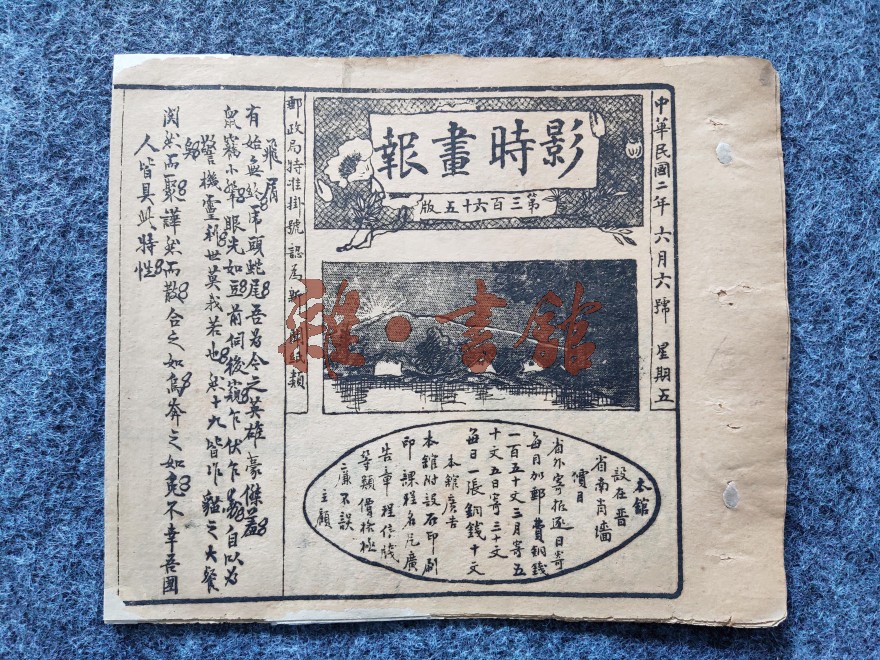 中華民國二年六月六號 星期五
影時畫報
第三百六十五版
郵政局特准掛號認爲新聞紙類
書館
本館
設在晋
省南肖墻
價目
省外寄
逐日寄
每月加郵費銅錢
一百五十文三月寄五
十文五日寄三十文
每日一張銅錢十文
本館廣告
本館附設石印刷
印課程名片廣
告章程信牋
等類價格極
廉不誤
主顧
飛屑
有始無終虎頭蛇尾吾爲今之英雄豪傑羞
鼠竊小輩眼光如豆前伺後窺乍伏乍 自以爲
警機靈利世莫我若也然十九皆作貓之大餐
閧然而聚譁然而散合之如烏奔之如兔不幸吾國
人皆具此特性